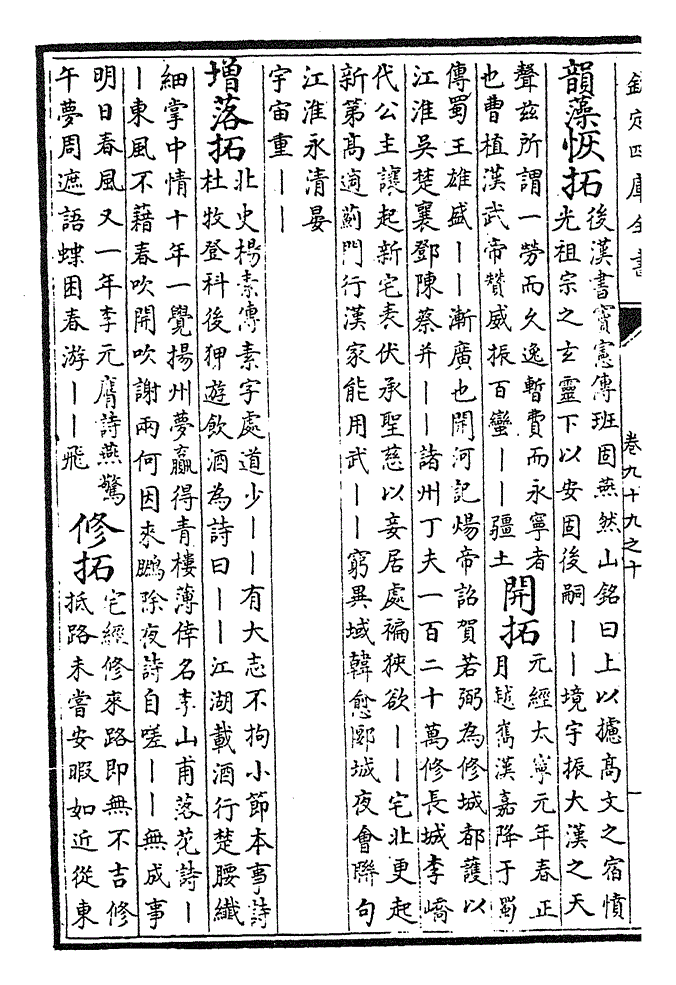 欽定四庫全書
卷九十九之十
一
韻藻恢拓
後漢書竇憲傳班固燕然山銘曰上以攄髙文之宿憤
光祖宗之玄靈下以安固後嗣丨丨境宇振大漢之天
聲兹所謂一勞而久逸暫費而永寧者
也曹植漢武帝贊威振百蠻丨丨疆土
開拓
元經太寧元年春正
月越嶲漢嘉降于蜀
傳蜀王雄盛丨丨漸廣也開河記煬帝詔賀若弼為修城都護以
江淮吳楚襄鄧陳蔡并丨丨諸州丁夫一百二十萬修長城李嶠
代公主讓起新宅表伏承聖慈以妾居處褊狹欲丨丨宅北更起
新第髙適薊門行漢家能用武丨丨窮異域韓愈郾城夜會聯句
江淮永清晏
宇宙重丨丨
增落拓
北史楊素傳素字處道少丨丨有大志不拘小節本事詩
杜牧登科後狎遊飲酒為詩曰丨丨江湖載酒行楚腰纖
細掌中情十年一覺揚州夢贏得青樓薄倖名李山甫落花詩丨
丨東風不藉春吹開吹謝兩何因來鵬除夜詩自嗟丨丨無成事
明日春風又一年李元膺詩燕驚
午夢周遮語蝶困春游丨丨飛
修拓
宅經修來路即無不吉修
抵路未嘗安暇如近從東